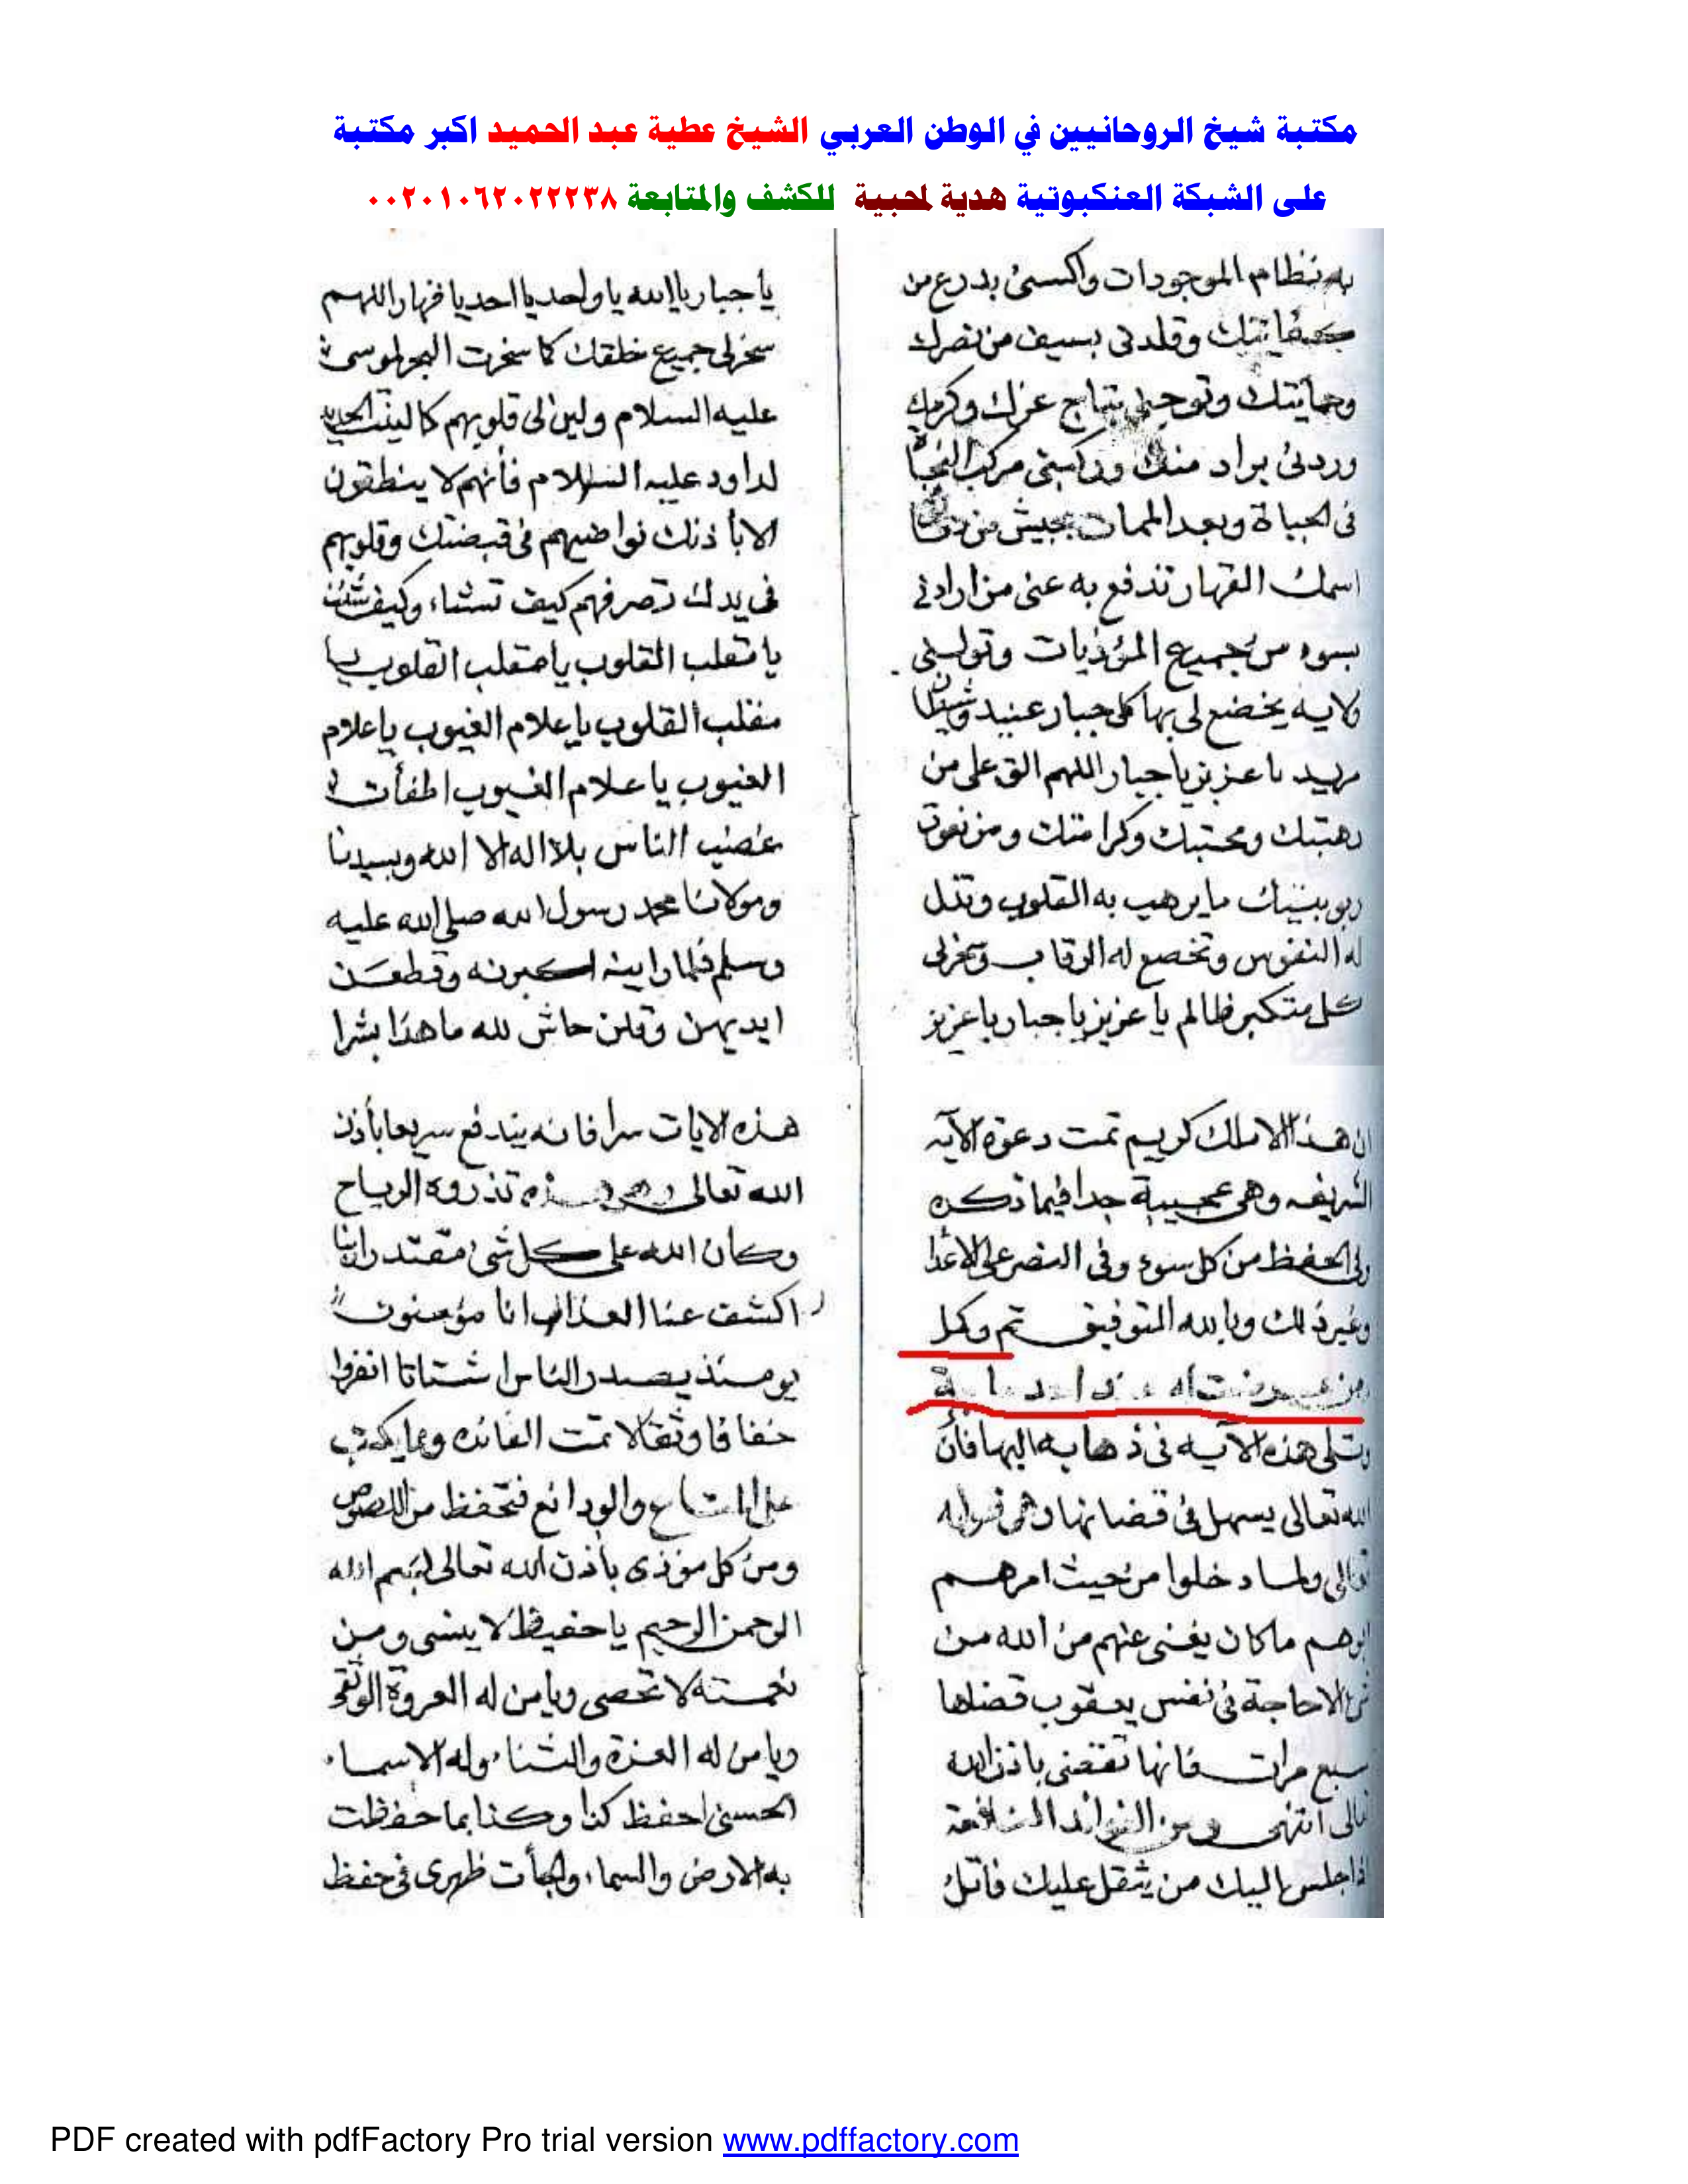 مكتبة شيخ الروحانيين في الوطن العربي الشيخ عطية عبد الحميد اكبر مكتبة
على الشبكة العنكبوتية هدية لمحبية للكشف والمتابعة ٠٠٢٠١٠٦٢٠٢٢٢٣٨
به نظام الموجودات واكسنى بدرع من
كفايتك وقلدنى بسيف من نصرك
وحمايتك وتوجنى بتاج عزك وكرمك
وردنى براد منك وركبنى مركب النجاة
فى الحياة وبعد الممات بجيش من
اسمك القهار تدفع به عنى من ارادنى
بسوء من جميع المؤذيات وتولنى
ولايه يخضع لى بها كل جبار عنيد وشيطان
مريد يا عزيز يا جبار اللهم الق على من
رهبتك ومحبتك وكرامتك ومن نعوت
ربوبيتك ما يرهب به القلوب وتذل
له النفوس وتخصع له الرقاب وسخر لى
كل متكبر ظالم يا عزيز يا جبار يا عزيز
يا جبار يا الله يا واحد يا احد يا قهار اللهم
سخر لى جميع خلقك كما سخرت البحر لموسى
عليه السلام ولين لى قلوبهم كما لينت الحديد
لداود عليه السلام فأنهم لا ينطقون
الا بأذنك نواصيهم فى قبضتك وقلوبهم
فى يدك تصرفهم كيف تشاء وكيف شئت
يا مقلب القلوب يا مقلب القلوب يا
مقلب القلوب يا علام الغيوب يا علام
الغيوب يا علام الغيوب اطفأت
غضب الناس بلا اله الا الله وبسيدنا
ومولانا محمد رسول الله صلى الله عليه
وسلم فلما راينه اكبرنه وقطعن
ايديهن وقلن حاش لله ما هذا بشرا
ان هذا الا ملك كريم تمت دعوة الآيه
الشريفه وهى عجيبة جدا فيما تذكره
فى الحفظ من كل سوء وفى النصر على الاعدا
وغير ذلك وبالله التوفيق تم وكمل
وتتلى هذه الآيه فى ذهابه اليها فأن
الله تعالى يسهل فى قضائها وهى قوله
تعالى ولما دخلوا من حيث امرهم
ابوهم ما كان يغنى عنهم من الله من
شئ الا حاجة فى نفس يعقوب قضاها
سبع مرات فانها تقضى باذن الله
تعالى انتهى ومن الفوائد النافعة
اذا جلس اليك من يثقل عليك فاتل
هذه الايات سرا فانه يندفع سريعا بأذن
الله تعالى تذروه الرياح
وكان الله على كل شئ مقتدرا ربنا
اكشف عنا العذاب انا مؤمنون
يومئذ يصدر الناس اشتاتا انفروا
خفافا وثقالا تمت الفائده ومما يكتب
على المتاع والودائع فتحفظ من اللصوص
ومن كل مؤذى بأذن الله تعالى بسم الله
الرحمن الرحيم يا حفيظ لا ينسى ومن
نعمته لا تحصى ويا من له العروة الوثقى
ويا من له العزة والثناء وله الاسماء
الحسنى احفظ كذا وكذا بما حفظت
به الارض والسماء والجأت ظهرى فى حفظ
PDF created with pdfFactory Pro trial version www.pdffactory.com